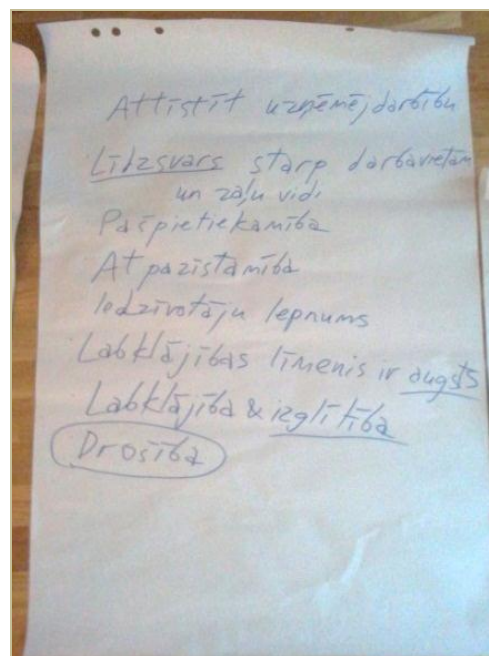 Attīstīt uzņēmējdarbību
Līdzsvars starp darbavietām
un zaļu vidi
Pašpietiekamība
Atpazīstamība
Iedzīvotāju lepnums
Labklājības līmenis ir augsts
Labklājība & izglītība
Drošība